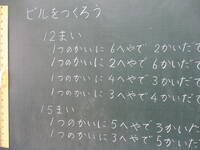 ビルをつくろう
12まい
1つのかいに 6へやで 2かいだて
1つのかいに 2へやで 6かいだ
1つのかいに 4へやで 3かいだ
1つのかいに 3へやで 4かいだ
15まい
1つのかいに5へやで 3かいた
1つのかいに3へやで 5かいだ